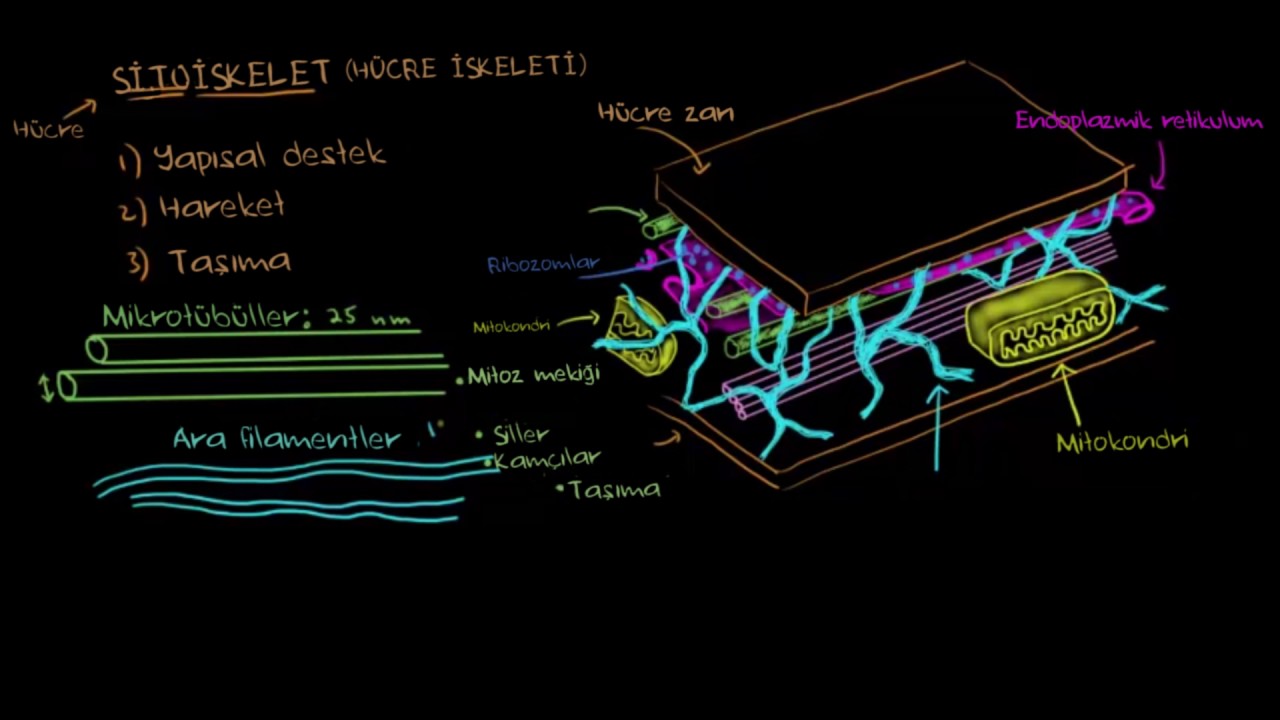 SİTOİSKELET (HÜCRE İSKELETİ)
Hücre
1) Yapısal destek
2) Hareket
3) Taşıma
Mikrotübüller: 25 nm
• Mitoz mekiği
• Siller
• Kamçılar
• Taşıma
Ara filamentler
Hücre zarı
Endoplazmik retikulum
Ribozomlar
Mitokondri
Mitokondri